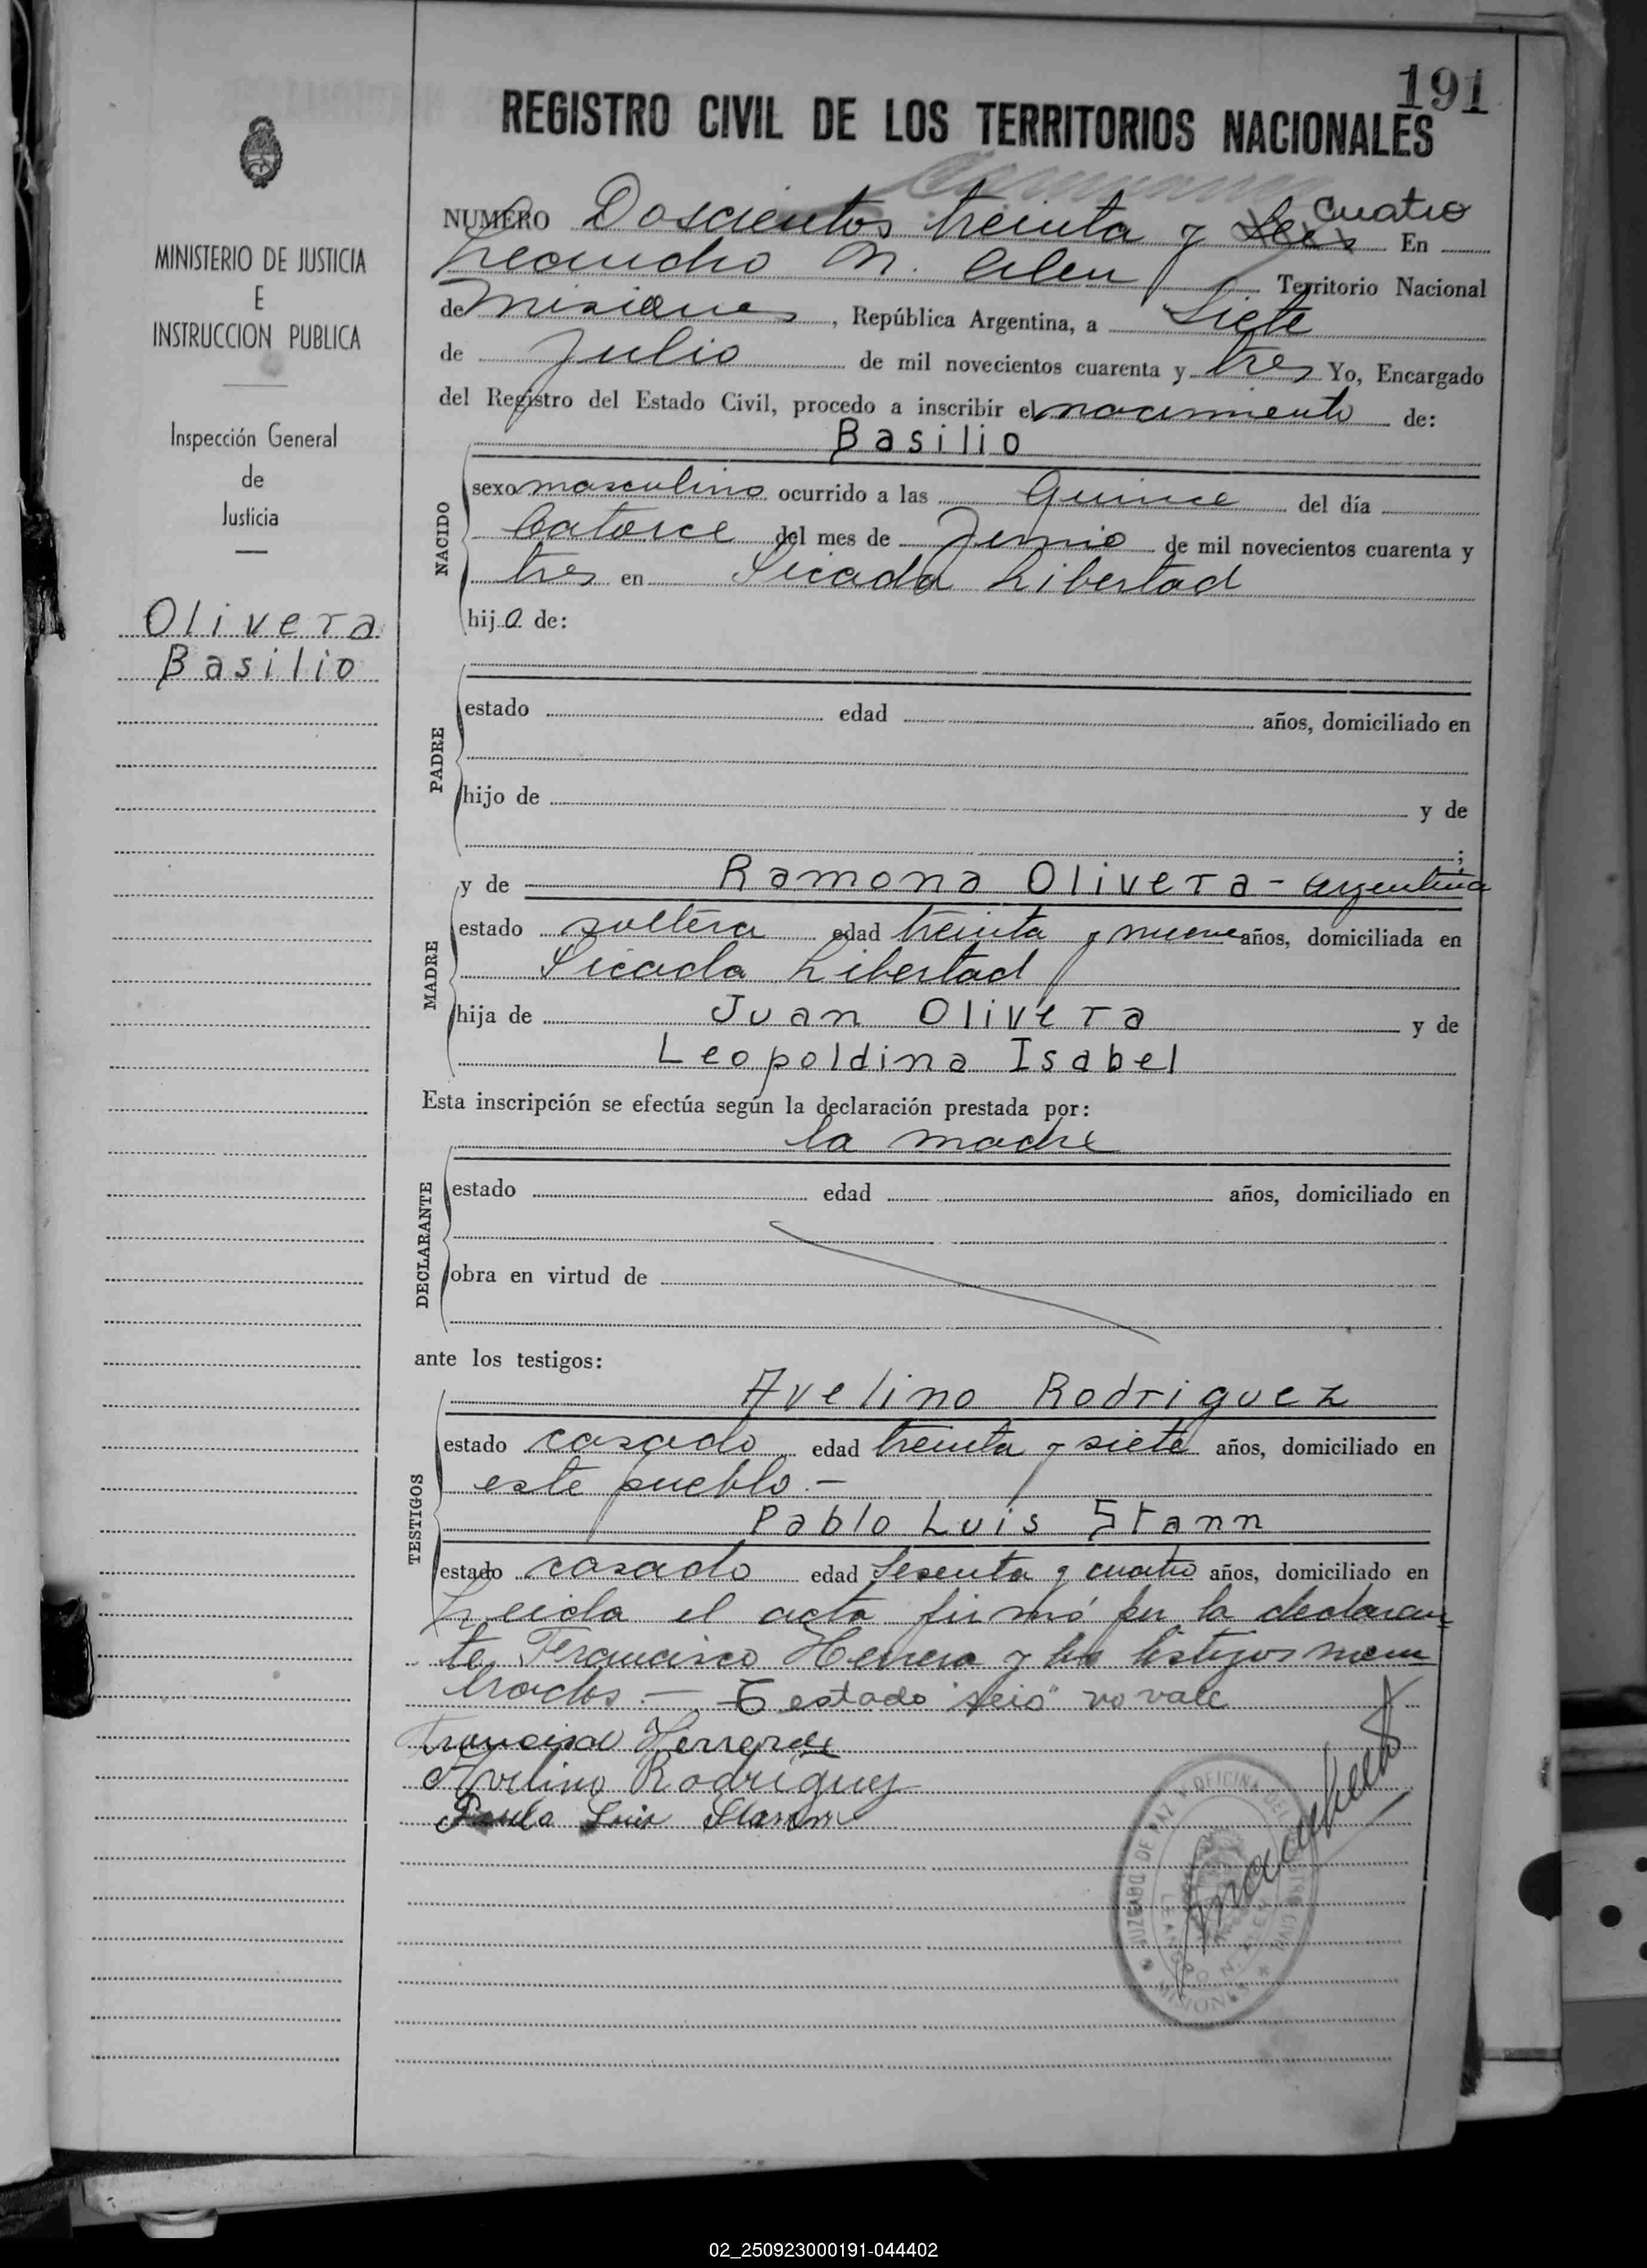 191
REGISTRO CIVIL DE LOS TERRITORIOS NACIONALES
NUMERO Doscientos treinta y seis cuatro En
Leandro N. Alem Territorio Nacional
de Misiones, República Argentina, a Siete
de Julio de mil novecientos cuarenta y tres Yo, Encargado
del Registro del Estado Civil, procedo a inscribir el nacimiento de:
Basilio
NACIDO
sexo masculino ocurrido a las Quince del día
Catorce del mes de Junio de mil novecientos cuarenta y
tres en Picada Libertad
hijo de:
PADRE
estado edad años, domiciliado en
hijo de y de
;
MADRE
y de Ramona Olivera - argentina
estado soltera edad treinta y nueve años, domiciliada en
Picada Libertad
hija de Juan Olivera y de
Leopoldina Isabel
Esta inscripción se efectúa según la declaración prestada por:
la madre
DECLARANTE
estado edad años, domiciliado en
obra en virtud de
ante los testigos:
TESTIGOS
Avelino Rodriguez
estado casado edad treinta y siete años, domiciliado en
este pueblo.-
Pablo Luis Stann
estado casado edad sesenta y cuatro años, domiciliado en
Leida el acta firmó por la declaran
te Francisco Herrera y los testigos nom
brados.- Testado "seis" no vale
Francisco Herrera
Avelino Rodriguez
Paulo Luis Stann
JUZGADO DE PAZ Y OFICINA DEL REGISTRO CIVIL
LEANDRO N. ALEM
MISIONES
MINISTERIO DE JUSTICIA
E
INSTRUCCION PUBLICA
Inspección General
de
Justicia
Olivera
Basilio
02_250923000191-044402